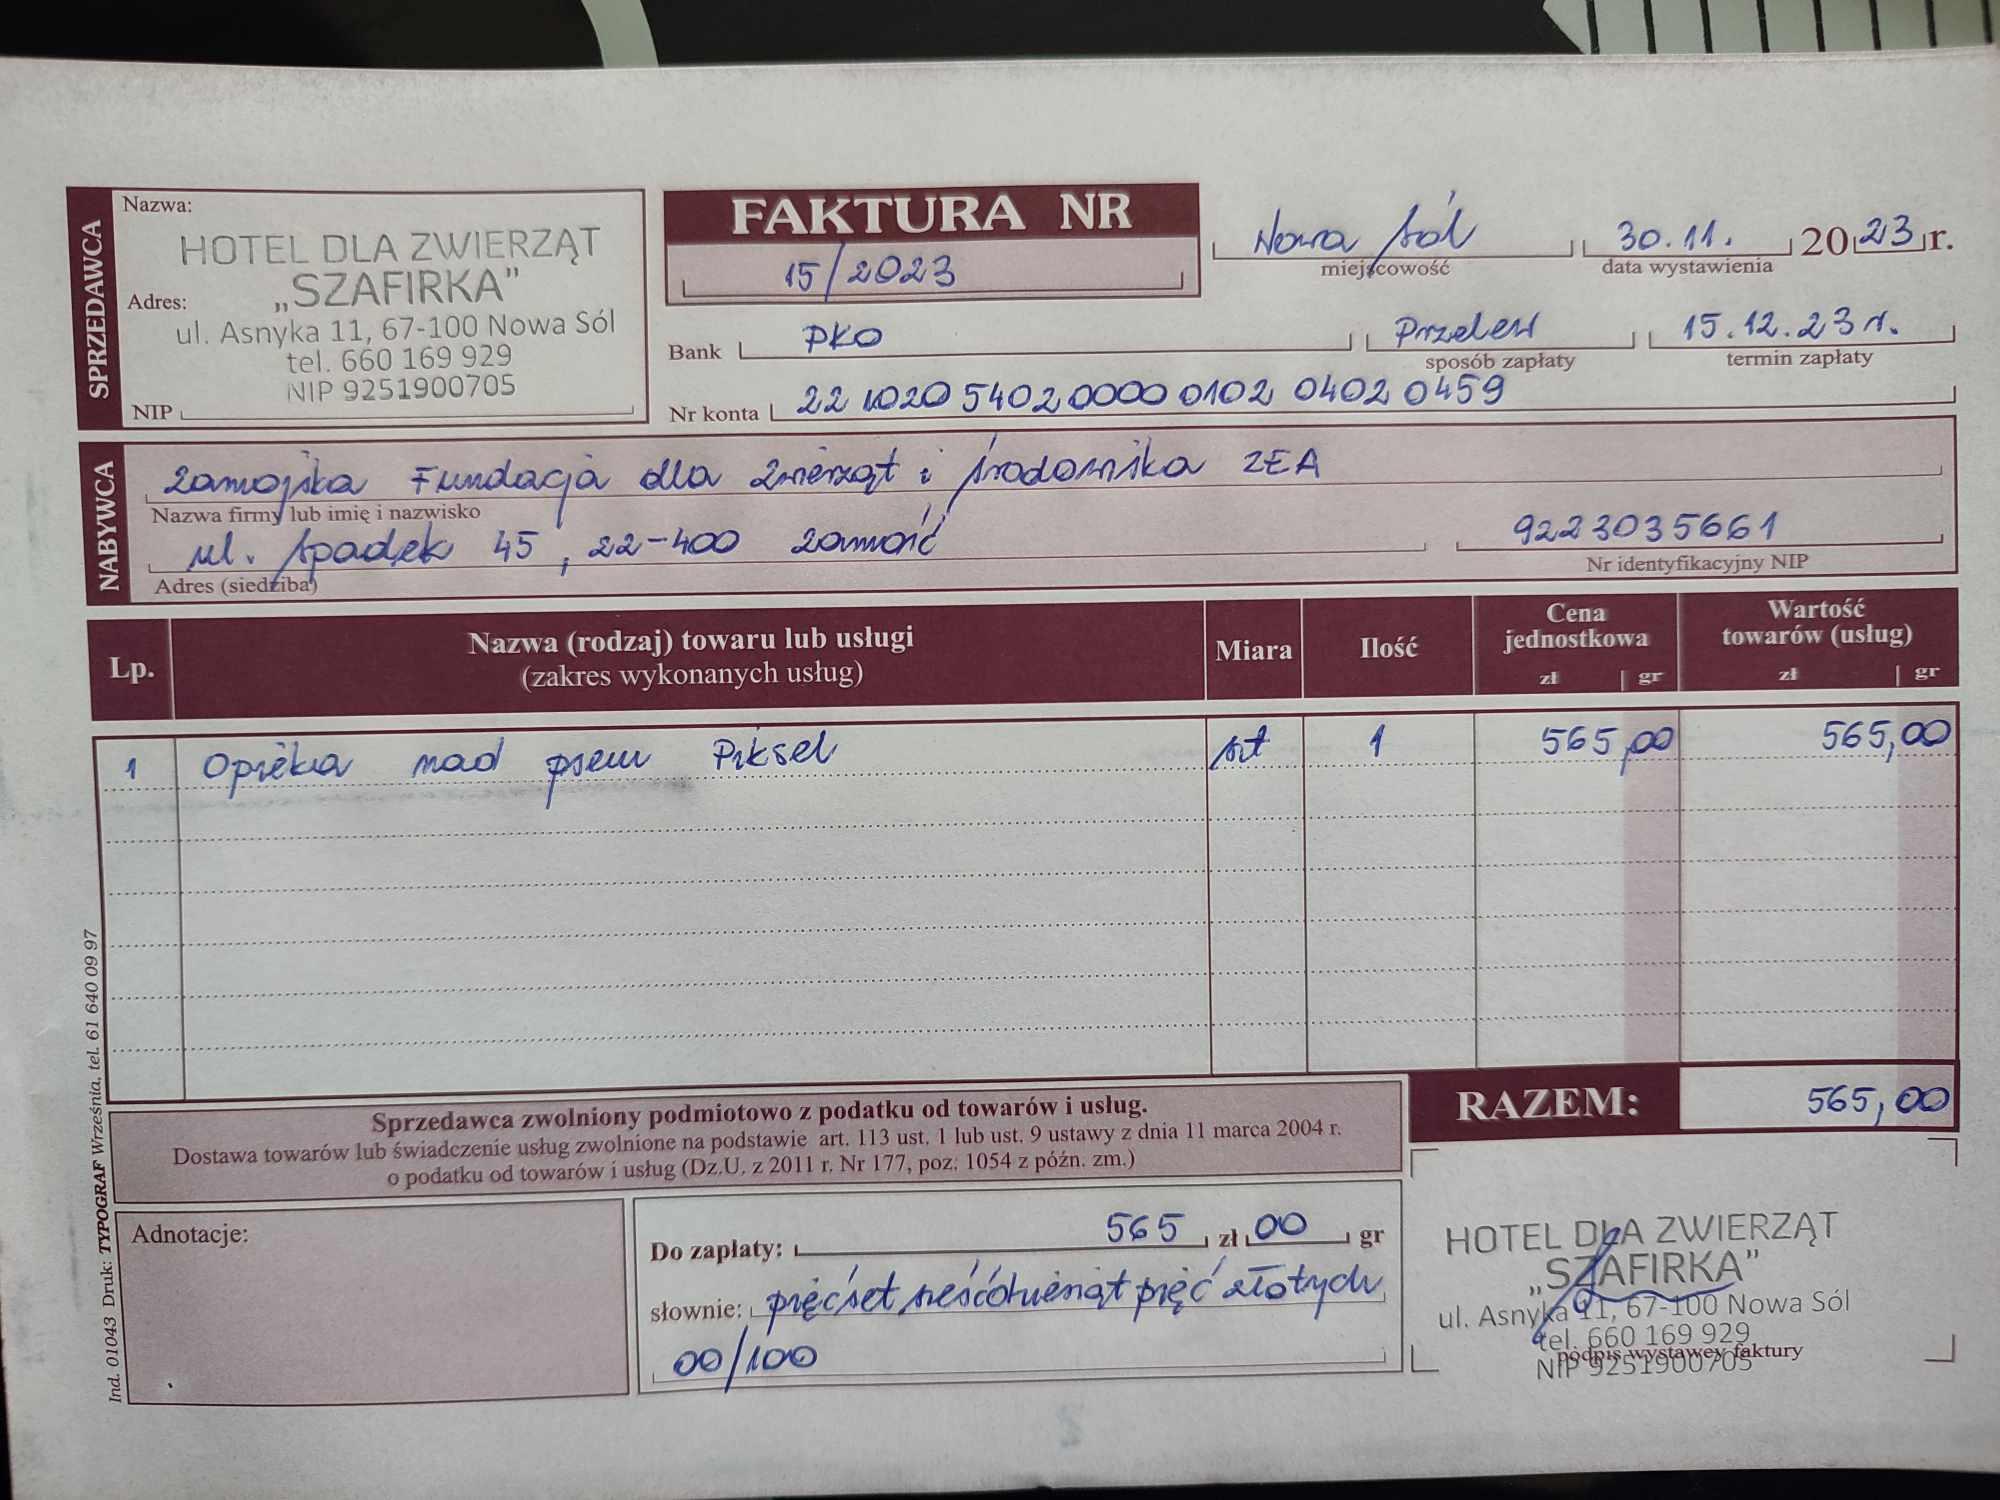 SPRZEDAWCA
Nazwa:
HOTEL DLA ZWIERZĄT
„SZAFIRKA”
Adres:
ul. Asnyka 11, 67-100 Nowa Sól
tel. 660 169 929
NIP 9251900705
NIP
FAKTURA NR
15/2023
Nowa Sól
miejscowość
30.11.
data wystawienia
2023 r.
Bank PKO
Przelew
sposób zapłaty
15.12.23r.
termin zapłaty
Nr konta 22 1020 5402 0000 0102 0402 0459
NABYWCA
Zamojska Fundacja dla Zwierząt i środowiska ZEA
Nazwa firmy lub imię i nazwisko
ul. Spadek 45, 22-400 Zamość
Adres (siedziba)
9223035661
Nr identyfikacyjny NIP
Lp.
Nazwa (rodzaj) towaru lub usługi
(zakres wykonanych usług)
Miara
Ilość
Cena
jednostkowa
zł gr
Wartość
towarów (usług)
zł gr
1 Opieka nad psem Piksel szt 1 565,00 565,00
RAZEM: 565,00
Sprzedawca zwolniony podmiotowo z podatku od towarów i usług.
Dostawa towarów lub świadczenie usług zwolnione na podstawie art. 113 ust. 1 lub ust. 9 ustawy z dnia 11 marca 2004 r.
o podatku od towarów i usług (Dz.U. z 2011 r. Nr 177, poz. 1054 z późn. zm.)
Adnotacje:
Do zapłaty: 565 zł 00 gr
słownie: pięćset sześćdziesiąt pięć złotych
00/100
HOTEL DLA ZWIERZĄT
„SZAFIRKA”
ul. Asnyka 11, 67-100 Nowa Sól
tel. 660 169 929
podpis wystawcy faktury
NIP 9251900705
Ind. 01043 Druk: TYPOGRAF Września, tel. 61 640 09 97